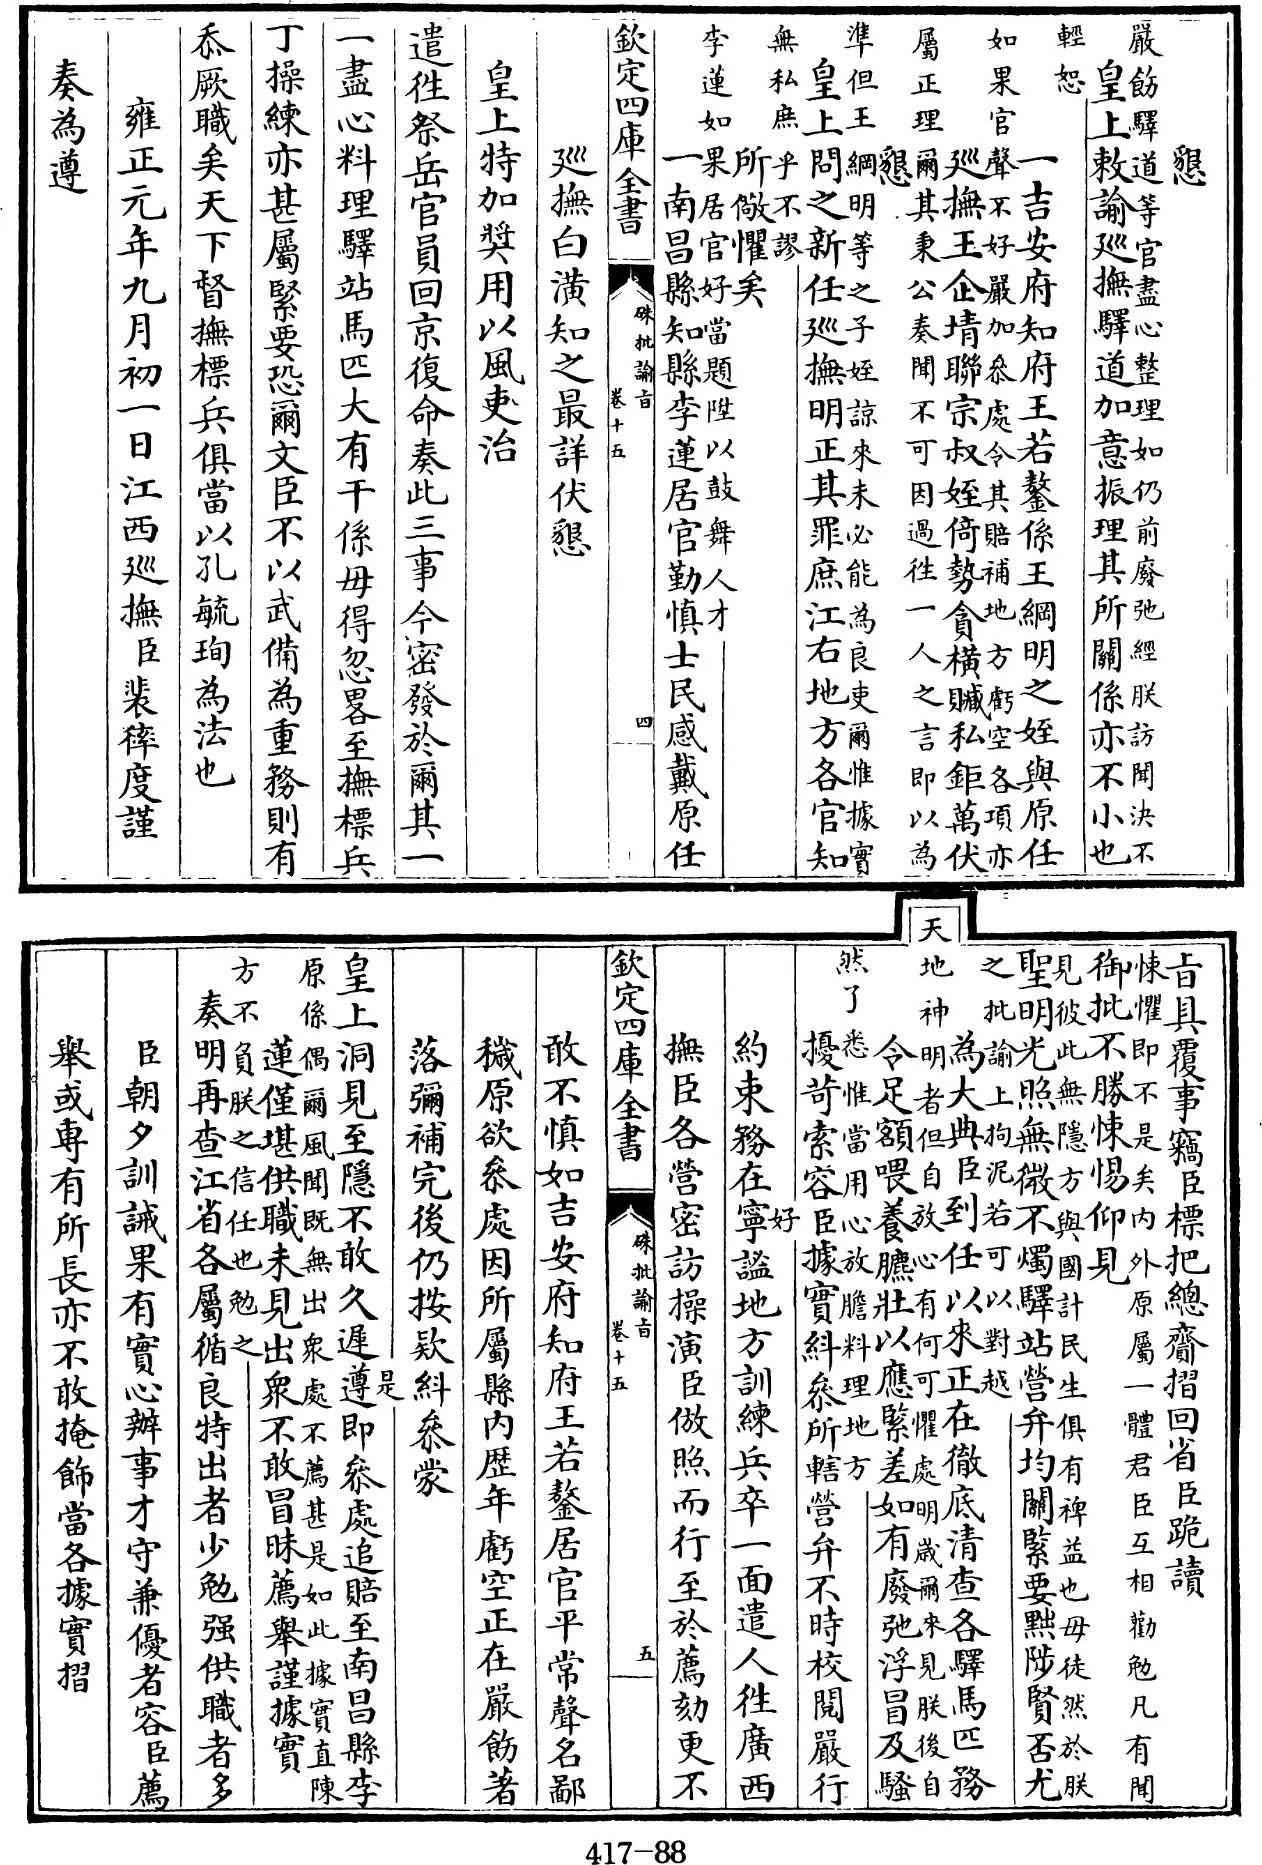 懇
嚴飭驛道等官盡心整理如仍前廢弛經朕訪聞決不
皇上敕諭廵撫驛道加意振理其所關係亦不小也
輕恕
一吉安府知府王若鏊係王綱明之姪與原任
如果官聲不好嚴加叅處令其賠補地方虧空各項亦
廵撫王企埥聯宗叔姪倚勢貪橫贓私鉅萬伏
屬正理爾其秉公奏聞不可因過徃一人之言即以為
懇
準但王綱明等之子姪諒來未必能為良吏爾惟據實
皇上問之新任廵撫明正其罪庶江右地方各官知
無私庶乎不謬
所儆懼矣
李蓮如果居官好當題陞以鼓舞人才
一南昌縣知縣李蓮居官勤慎士民感戴原任
欽定四庫全書 硃批諭旨 卷十五 四
廵撫白潢知之最詳伏懇
皇上特加奬用以風吏治
遣徃祭岳官員回京復命奏此三事今密發於爾其一
一盡心料理驛站馬匹大有干係毋得忽畧至撫標兵
丁操練亦甚屬緊要恐爾文臣不以武備為重務則有
忝厥職矣天下督撫標兵俱當以孔毓珣為法也
雍正元年九月初一日江西廵撫臣裴𢕪度謹
奏為遵
旨具覆事竊臣標把總齎摺回省臣跪讀
悚懼即不是矣內外原屬一體君臣互相勸勉凡有聞
御批不勝悚惕仰見
見彼此無隱方與國計民生俱有裨益也毋徒然於朕
聖明光照無微不燭驛站營弁均關緊要黜陟賢否尤
之批諭上拘泥若可以對越
為大典臣到任以來正在徹底清查各驛馬匹務
天地神明者但自放心有何可懼處明歲爾來見朕後自
令足額喂養臕壯以應緊差如有廢弛浮冒及騷
然了悉惟當用心放膽料理地方
擾苛索容臣據實糾叅所轄營弁不時校閱嚴行
好
約束務在寧謐地方訓練兵卒一面遣人徃廣西
撫臣各營密訪操演臣倣照而行至於薦劾更不
欽定四庫全書 硃批諭旨 卷十五 五
敢不慎如吉安府知府王若鏊居官平常聲名鄙
穢原欲叅處因所屬縣內歷年虧空正在嚴飭著
落彌補完後仍按欵糾叅蒙
是
皇上洞見至隱不敢久遲遵即叅處追賠至南昌縣李
原係偶爾風聞既無出衆處不薦甚是如此據實直陳
蓮僅堪供職未見出衆不敢冒昧薦舉謹據實
方不負朕之信任也勉之
奏明再查江省各屬循良特出者少勉强供職者多
臣朝夕訓誡果有實心辦事才守兼優者容臣薦
舉或專有所長亦不敢掩飾當各據實摺
417-88